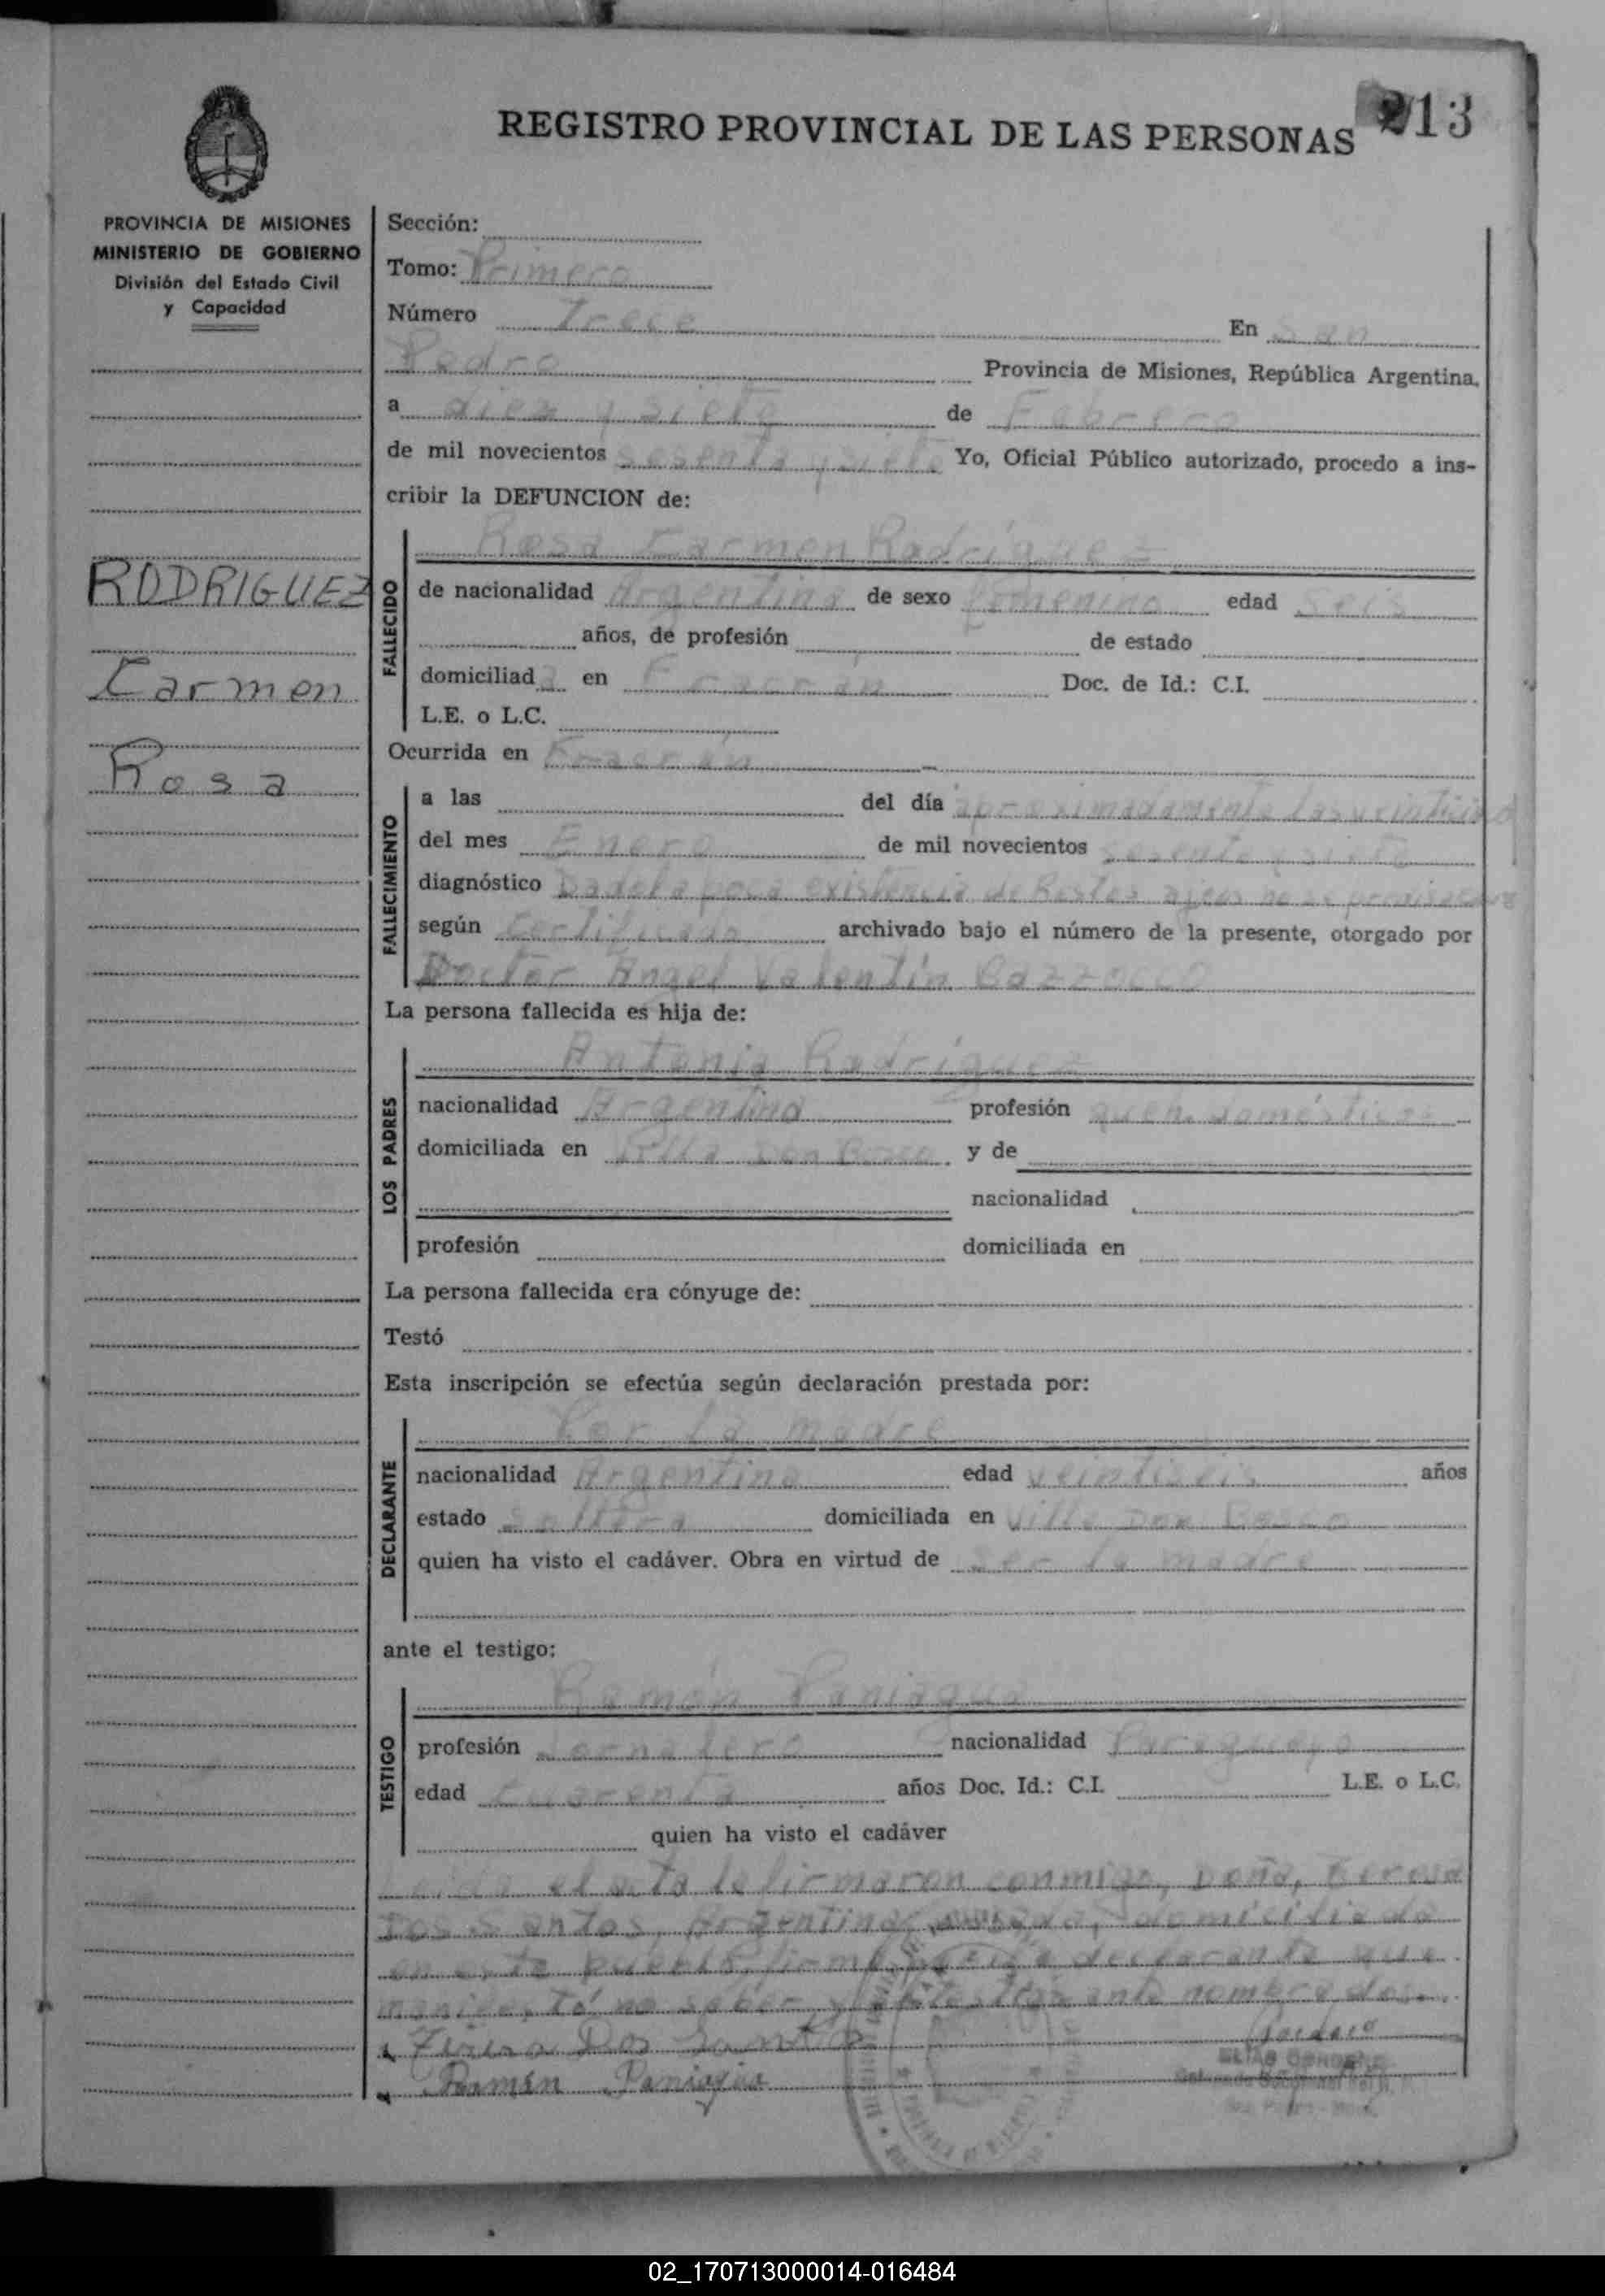 REGISTRO PROVINCIAL DE LAS PERSONAS
213
PROVINCIA DE MISIONES
MINISTERIO DE GOBIERNO
División del Estado Civil
y Capacidad
RODRIGUEZ
Carmen
Rosa
Sección:
Tomo: Primero
Número Trece En San
Pedro Provincia de Misiones, República Argentina,
a diez y siete de Febrero
de mil novecientos sesenta y siete Yo, Oficial Público autorizado, procedo a ins-
cribir la DEFUNCION de:
FALLECIDO
Rosa Carmen Rodríguez
de nacionalidad Argentina de sexo femenino edad seis
años, de profesión de estado
domiciliada en Fracrán Doc. de Id.: C.I.
L.E. o L.C.
Ocurrida en Fracrán
FALLECIMIENTO
a las del día aproximadamente las
del mes Enero de mil novecientos sesenta y siete
diagnóstico Dada la poca existencia de Restos
según Certificado archivado bajo el número de la presente, otorgado por
Doctor Angel Valentín Bazzocco
La persona fallecida es hija de:
LOS PADRES
Antonia Rodríguez
nacionalidad Argentina profesión queh. domésticos
domiciliada en Villa Don Bosco y de
nacionalidad
profesión domiciliada en
La persona fallecida era cónyuge de:
Testó
Esta inscripción se efectúa según declaración prestada por:
DECLARANTE
Por la madre
nacionalidad Argentina edad veintiseis años
estado soltera domiciliada en Villa Don Bosco
quien ha visto el cadáver. Obra en virtud de ser la madre
ante el testigo:
TESTIGO
Ramón Paniagua
profesión Jornalero nacionalidad Paraguayo
edad cuarenta años Doc. Id.: C.I. L.E. o L.C.
quien ha visto el cadáver
Leida el acta la firmaron conmigo, Doña,
Dos Santos, Argentina, domiciliada
en este pueblo, firma declarante que
manifestó no saber y el testigo ante nombrado
Dos Santos
Ramón Paniagua
02_170713000014-016484